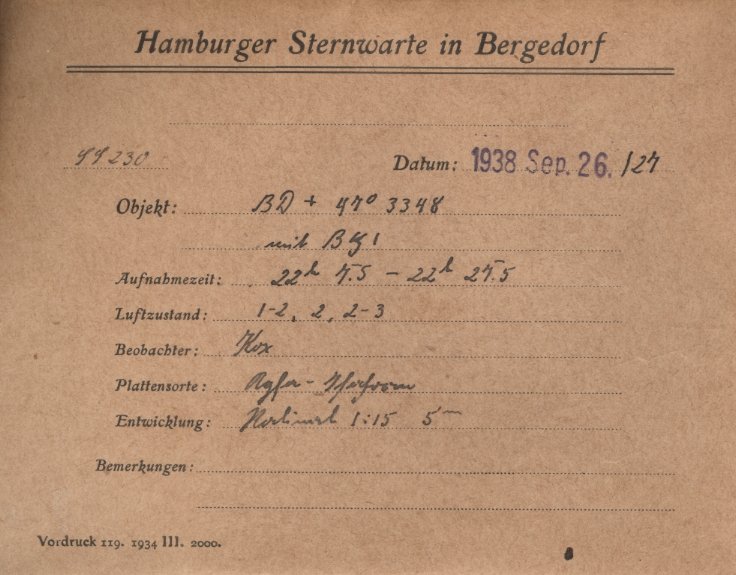 Hamburger Sternwarte in Bergedorf
Datum: 1938 Sep. 26. /27
Objekt: BD + 47° 3348
mit BG 1
Aufnahmezeit: 22h 7.5 – 22h 27.5
Luftzustand: 1-2, 2, 2-3
Beobachter: Kox
Plattensorte: Agfa-
Entwicklung: Rodinal 1:15 5m
Bemerkungen:
Vordruck 119. 1934 III. 2000.